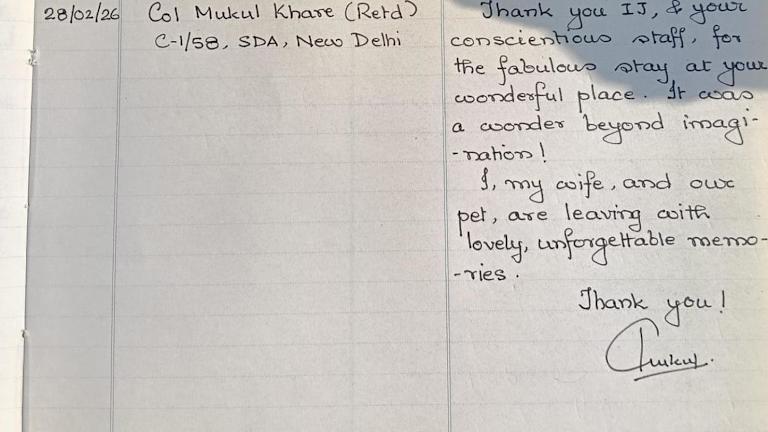 28/02/26
Col Mukul Khare (Retd)
C-1/58, SDA, New Delhi
Thank you IJ, & your
conscientious staff, for
the fabulous stay at your
wonderful place. It was
a wonder beyond imagi-
-nation!
I, my wife, and our
pet, are leaving with
lovely, unforgettable memo-
-ries.
Thank you!
Mukul.